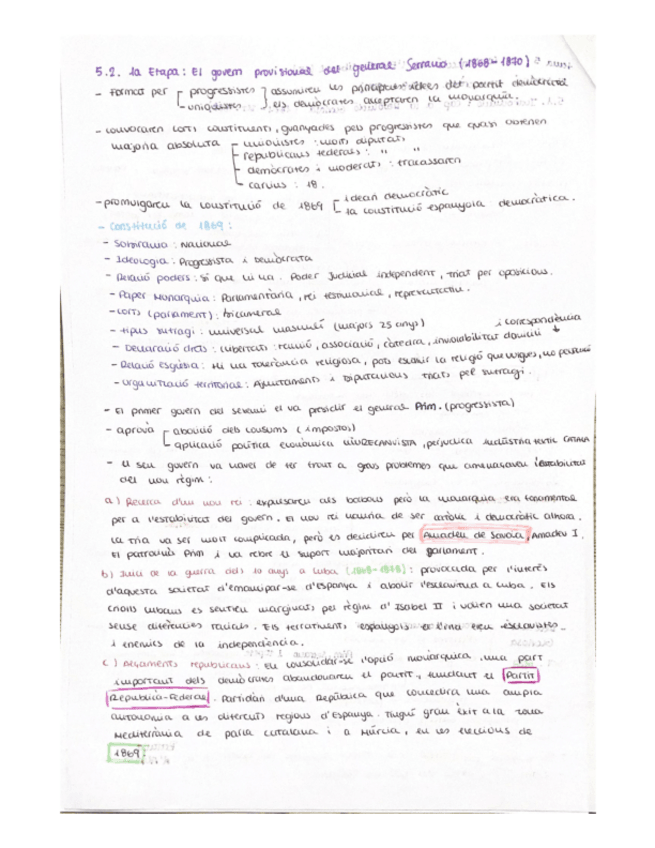 5.2. 1a Etapa: El govern provisional del general Serrano (1868-1870)
- Format per progressistes assumiren les principals idees del partit demòcrata
unionistes els demòcrates acceptaren la monarquia.
- Convocaren corts constituents, guanyades pels progressistes que quasi obtenen
majoria absoluta - unionistes: molts diputats
- republicans federals: " "
- demòcrates i moderats: fracassaren
- carlins: 18.
- promulgaren la constitució de 1869 ideari democràtic
1a constitució espanyola democràtica.
- Constitució de 1869:
- Sobirania: Nacional
- Ideologia: Progressista i Demòcrata
- Relació poders: Sí que hi ha. Poder Judicial independent, triat per oposicions.
- Paper Monarquia: Parlamentària, rei testimonial, representatiu.
- Corts (parlament): bicameral
- tipus sufragi: universal masculí (majors 25 anys) i correspondència
- Declaració drets: llibertats: reunió, associació, càtedra, inviolabilitat domicili
- Relació església: Hi ha tolerància religiosa, pots escollir la religió que vulgues, no
- Organització territorial: Ajuntaments i Diputacions triats pel sufragi.
- El primer govern del sexenni el va presidir el general Prim. (progressista)
- aprovà abolició dels consums (impostos)
aplicació política econòmica LLIURECANVISTA, perjudica indústria tèxtil CATALANA
- El seu govern va haver de fer front a greus problemes que amenaçaven l'estabilitat
del nou règim:
a) Recerca d'un nou rei: expulsaren als borbons però la monarquia era fonamental
per a l'estabilitat del govern. El nou rei hauria de ser catòlic i democràtic alhora.
La tria va ser molt complicada, però es decidiren per Amadeu de Savoia, Amadeu I.
El patrocinà Prim i va rebre el suport majoritari del parlament.
b) Inici de la guerra dels 10 anys a Cuba (1868-1878): provocada per l'interés
d'aquesta societat d'emancipar-se d'Espanya i abolir l'esclavitud a Cuba. Els
criolls cubans es sentien marginats pel règim d'Isabel II i volien una societat
sense diferències racials. Els terratinents espanyols a l'illa eren esclavistes
i enemics de la independència.
c) Alçaments republicans: En consolidar-se l'opció monàrquica, una part
important dels demòcrates abandonaren el partit, fundant el Partit
Republicà-Federal. Partidari d'una República que concedira una àmplia
autonomia a les diferents regions d'Espanya. Tingué gran èxit a la zona
Mediterrània de parla catalana i a Múrcia, en les eleccions de
1869.